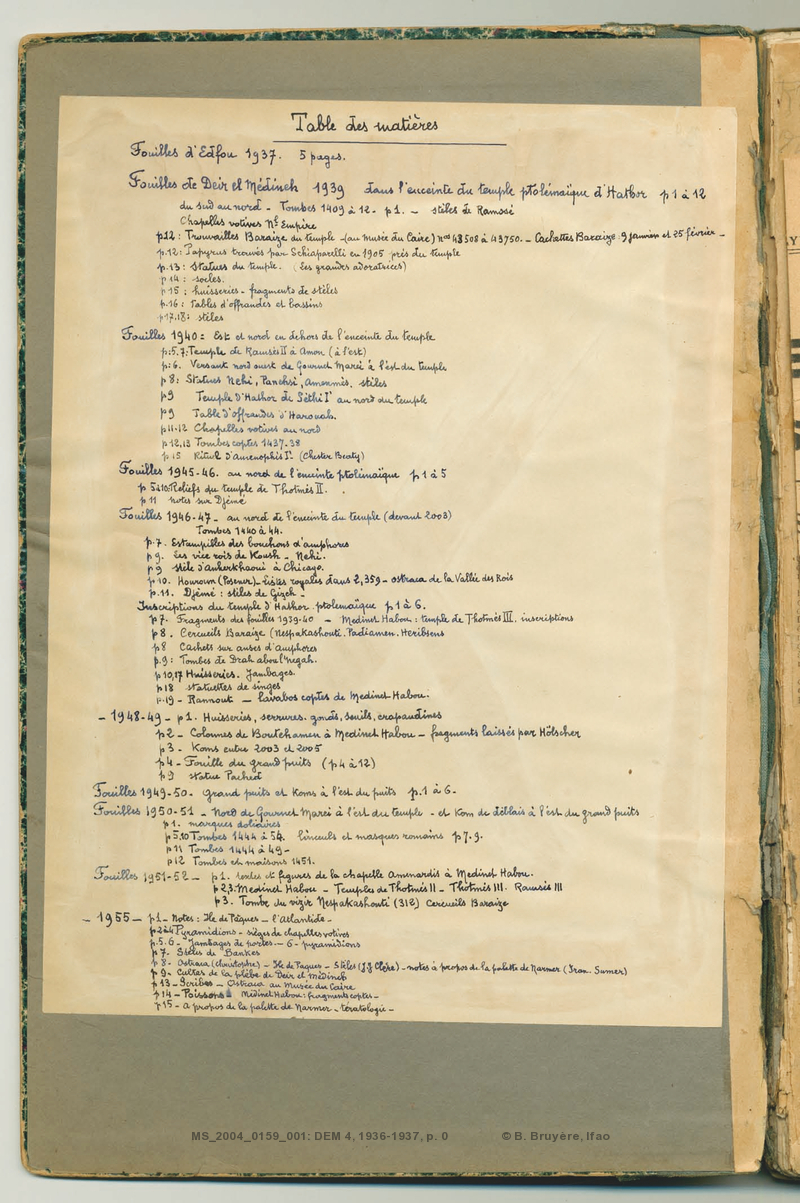 Table des matières
Fouilles d'Edfou 1937. 5 pages.
Fouilles de Deir el Médineh 1939 dans l'enceinte du temple ptolémaïque d'Hathor p 1 à 12
du sud au nord - Tombes 1409 à 12 - p 1. - stèles de Ramosé
Chapelles votives Nl Empire
p12 : Trouvailles Baraize du temple - (au musée du Caire) nos 43508 à 43750. - Cachettes Baraize 9 janvier et 25 février -
p.12: Papyrus trouvés par Schiaparelli en 1905 près du temple
p.13 : Statues du temple. (les grandes adoratrices)
p 14 : socles.
p 15 : huisseries - fragments de stèles
p.16 : Tables d'offrandes et bassins
p17.18: stèles
Fouilles 1940 : Est et nord en dehors de l'enceinte du temple
p:5.7: Temple de Ramsès II à Amon (à l'est)
p: 6. Versant nord ouest de Gournet Mareï à l'est du temple
p 8: Statues Nehi, Panehsi, Amenmès, stèles
p9 Temple d'Hathor de Séthi I° au nord du temple
p9 Table d'offrandes d'Harouah.
p11-12 Chapelles votives au nord
p12.13 Tombes coptes 1437-38
p 15 Rituel d'Amenophis I°. (Chester Beaty)
Fouilles 1945-46. au nord de l'enceinte ptolémaïque p 1 à 5
p 5à10: Reliefs du temple de Thotmès II. .
p 11 notes sur Djémé
Fouilles 1946-47 - au nord de l'enceinte du temple (devant 2003)
Tombes 1440 à 44.
p.7. Estampilles des bouchons d'amphores
p 9. Les vice rois de Koush - Nehi.
p 9 Stèle d'Anherkhaoui à Chicago.
p10. Houroum (Poseur) - listes royales dans 2,359 - ostraca de la Vallée des Rois
p.11. Djémé : stèles de Gizeh -
Inscriptions du temple d'Hathor ptolemaïque p 1 à 6.
p7. Fragments des fouilles 1939-40 - Medinet Habou : temple de Thotmès III. inscriptions
p 8. Cercueils Baraize (Nespakashouti. Padiamen. Heribsens
p 8 Cachets sur anses d'amphores
p.9: Tombes de Drah abou'l Negah.
p 10,17 Huisseries. Jambages.
p 18 statuettes de singes
p.19 - Rannout - lavabos coptes de Medinet Habou.
- 1948-49 - p 1. Huisseries, serrures, gonds, seuils, crapaudines
p 2 - Colonnes de Boutehamen à Medinet Habou - fragments laissés par Hölscher
p 3 - Koms entre 2003 et 2005
p 4 - Fouille du grand puits (p 4 à 12)
p 9 statue Pached
Fouilles 1949-50. grand puits et Koms à l'est du puits p.1 à 6-
Fouilles 1950-51 - Nord de Gournet Mareï à l'est du temple - et Kom de déblais à l'est du grand puits
p 1. marques doliaires
p5.10 Tombes 1444 à 54. linceuls et masques romains p 7.9.
p 11 Tombes 1444 à 49 -
p 12 Tombes et maisons 1451.
Fouilles 1951-52 - p 1. textes et figures de la chapelle Amenardis à Medinet Habou.
p 2,3. Medinet Habou - Temples de Thotmès II - Thotmès III. Ramsès III
p 3. Tombe du vizir Nespakashouti (312) Cercueils Baraize
- 1955 - p 1 - Notes : Ile de Pâques - l'Atlantide -
p2à4 Pyramidions - sièges de chapelles votives
p.5.6 - Jambages de portes - 6 - pyramidions
p 7 - Stèles de Bankes
p 8 - Ostraca (Christophe) - Ile de Pâques - Stèles (J.J Clère) - notes à propos de la palette de Narmer (Iran. Sumer)
p 9 - Cultes de la plèbe de Deir el Médineh
p 13 - Scribes - Ostraca au Musée du Caire
p 14 - Poissons Médinet Habou : fragments coptes -
p 15 - A propos de la palette de Narmer - tératologie -
MS_2004_0159_001: DEM 4, 1936-1937, p. 0 © B. Bruyère, Ifao